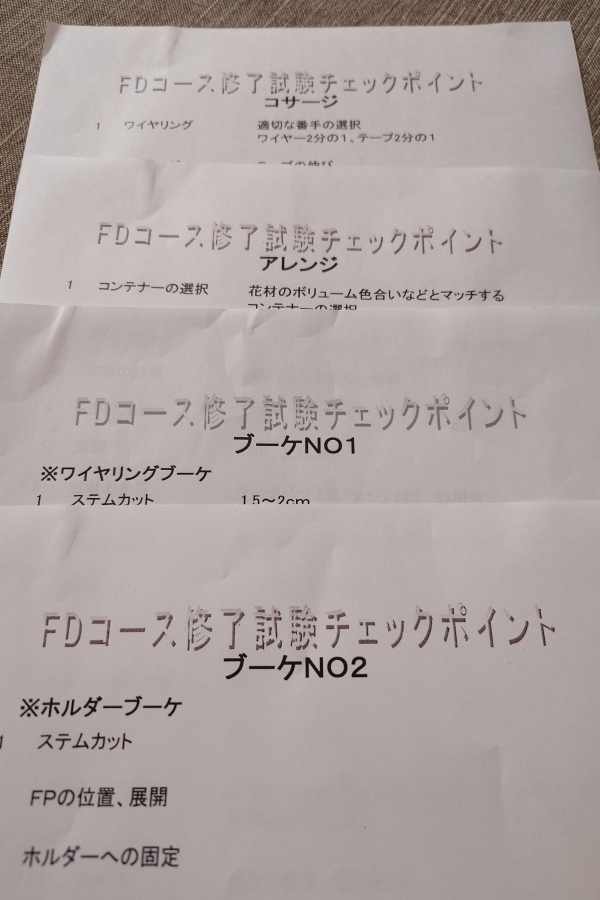 FDコース修了試験チェックポイント
コサージ
1 ワイヤリング 適切な番手の選択
ワイヤー2分の1、テープ2分の1
テープの伸び
FDコース修了試験チェックポイント
アレンジ
1 コンテナーの選択 花材のボリューム色合いなどとマッチする
コンテナーの選択
FDコース修了試験チェックポイント
ブーケNO1
※ワイヤリングブーケ
1 ステムカット 1.5～2cm
FDコース修了試験チェックポイント
ブーケNO2
※ホルダーブーケ
1 ステムカット
FPの位置、展開
ホルダーへの固定